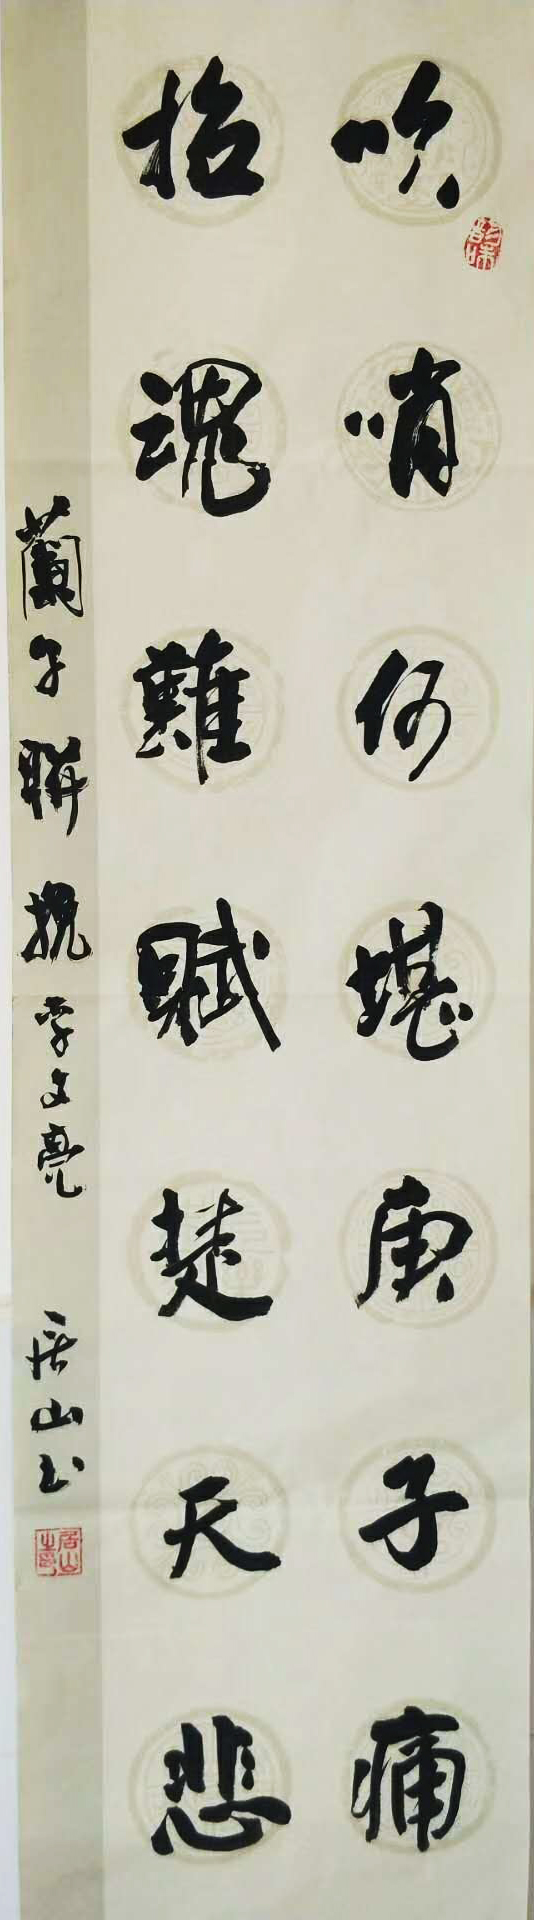 吹哨何堪庚子痛
招魂難賦楚天悲
蘭子聯挽李文亮
居山书